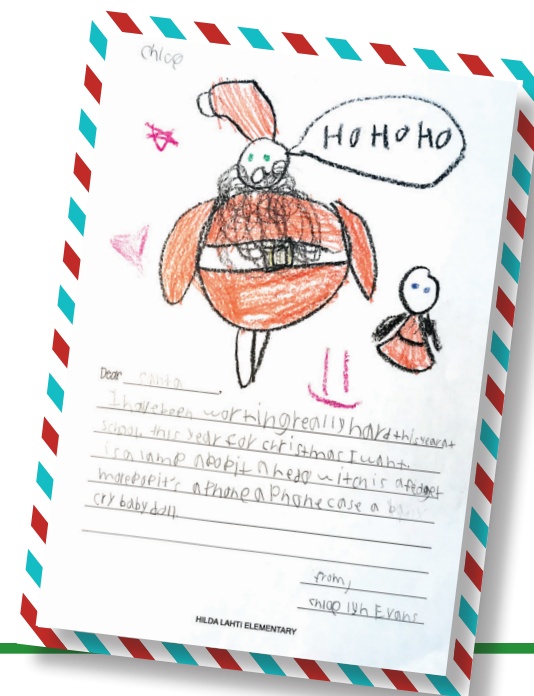 chloe
HO HO HO
Dear Santa,
I have been working really hard this year at
school. this year for christmas I want
is a lamp a popit a
more popit's a phone a phone case a
cry baby doll
from,
chloe lyn Evans
HILDA LAHTI ELEMENTARY